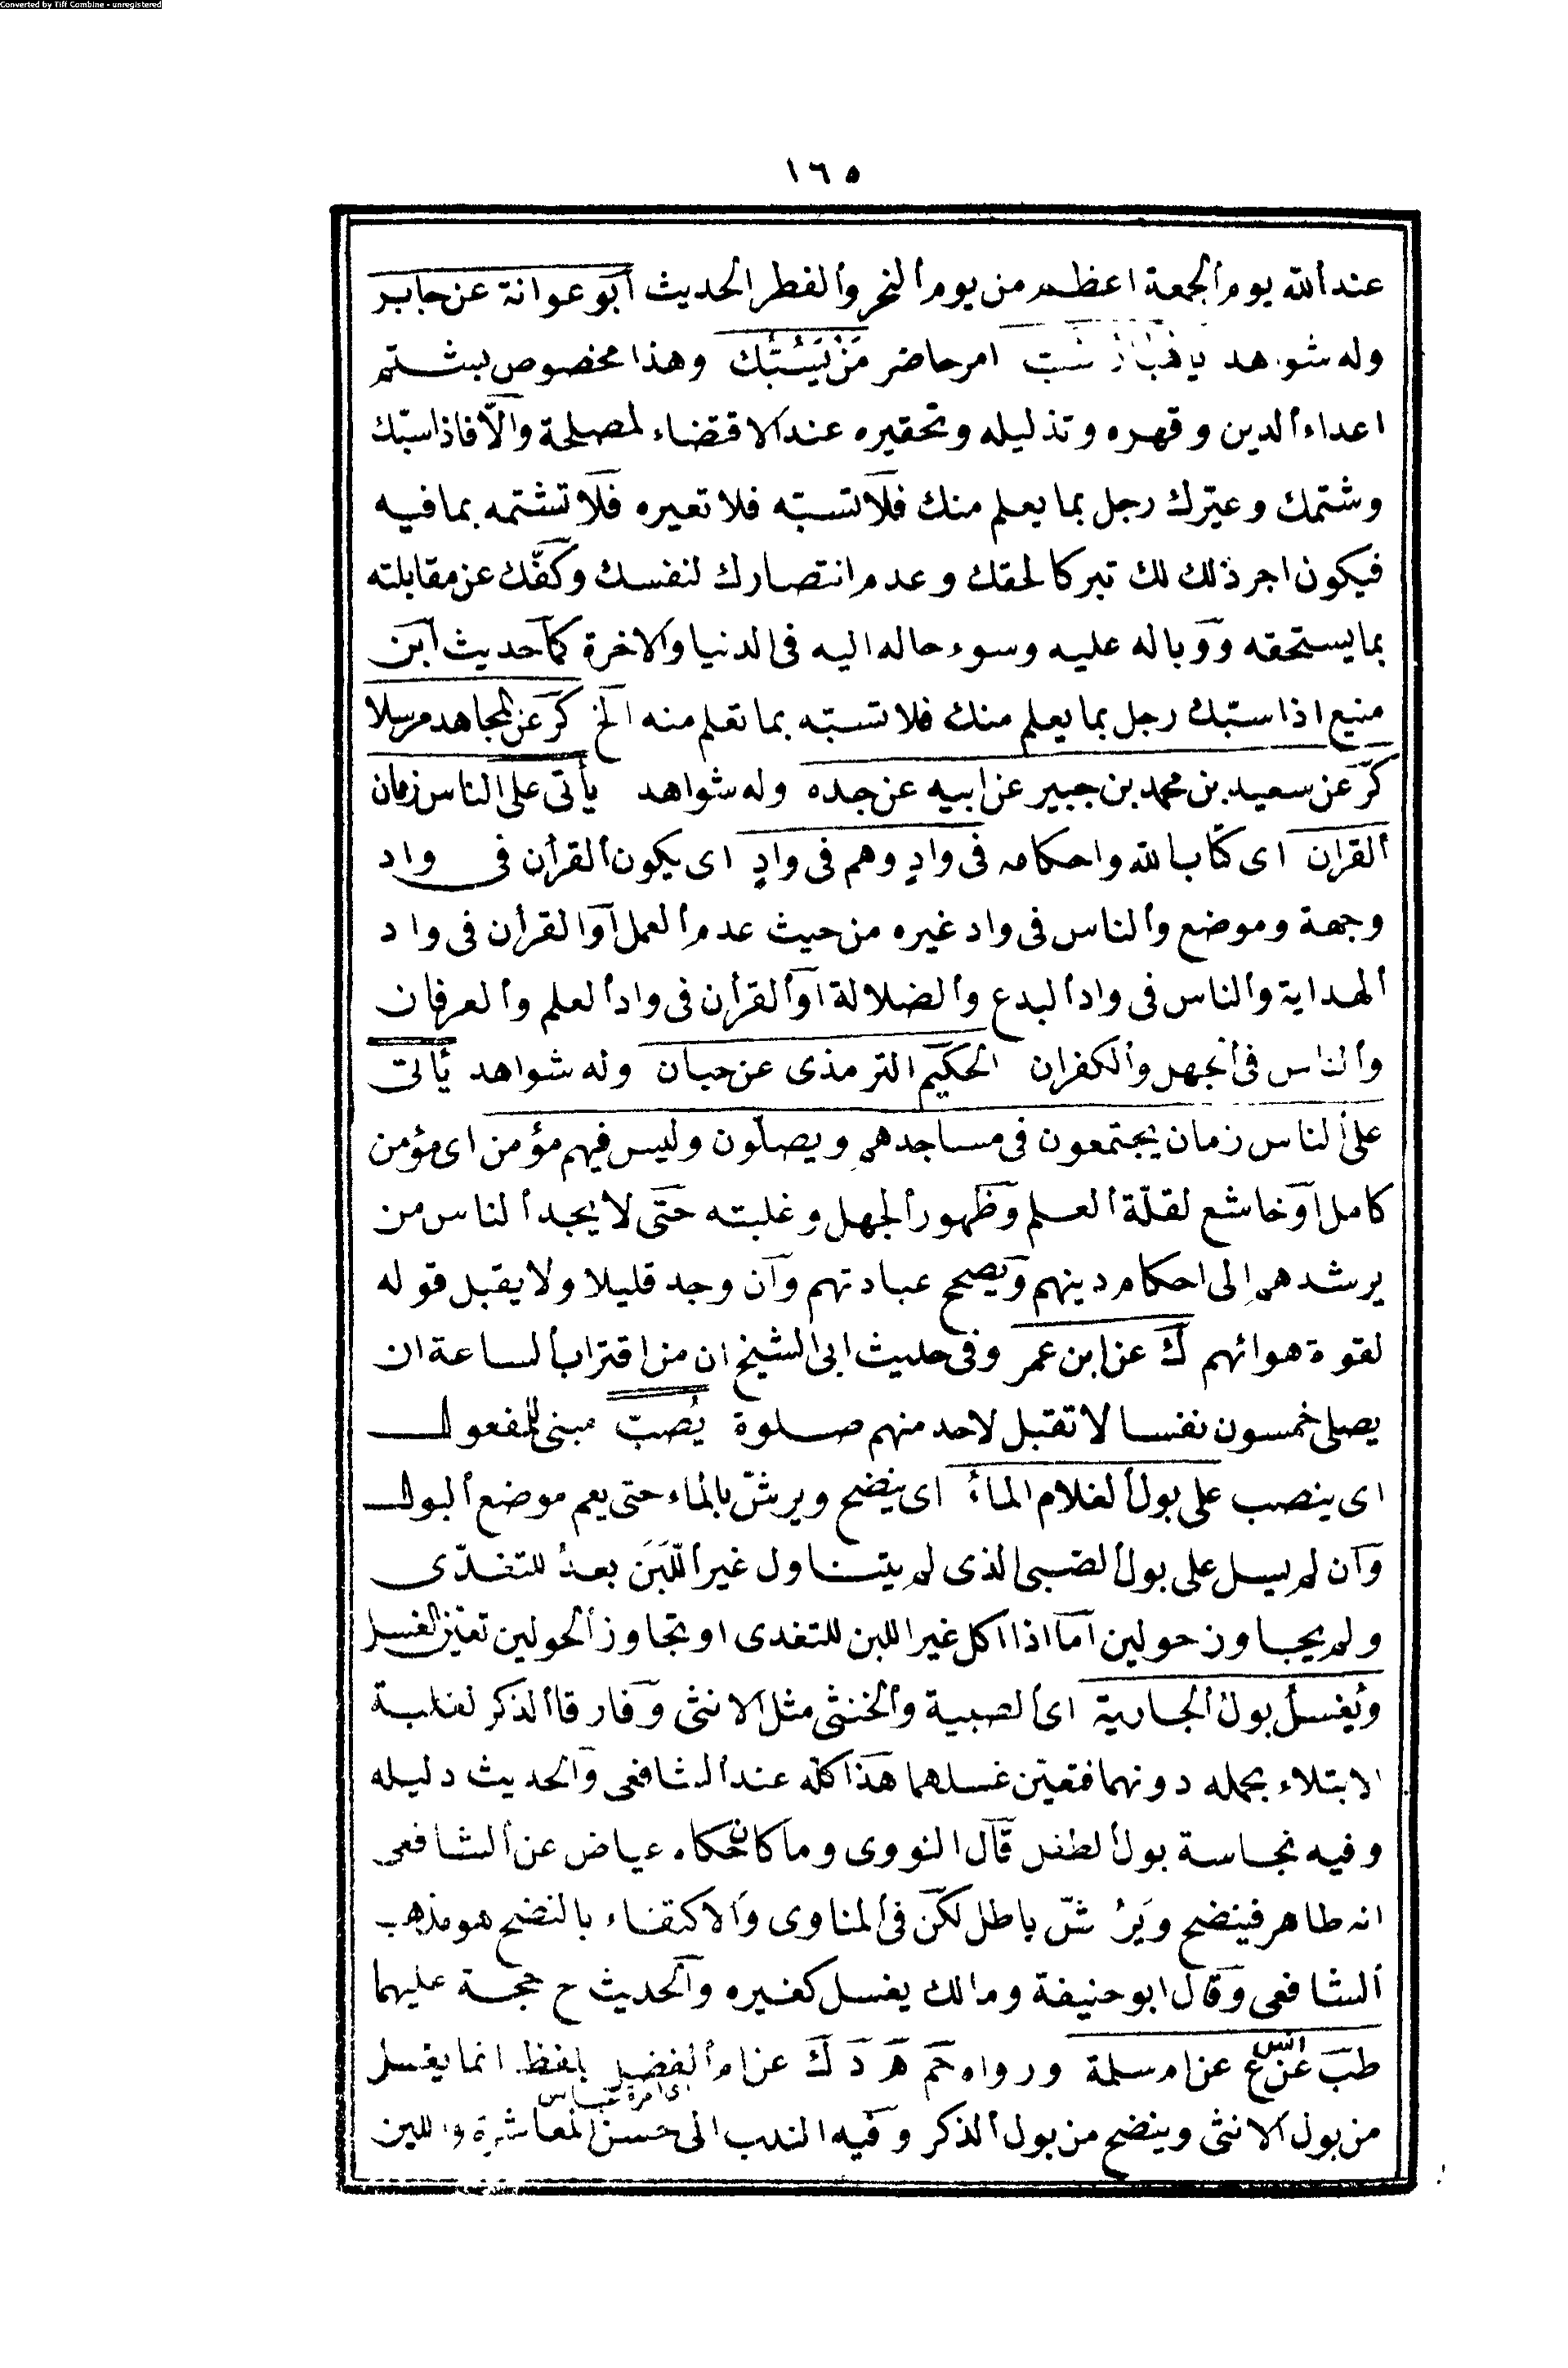 Converted by Tiff Combine - unregistered
١٦٥
عند الله يوم الجمعة اعظم من يوم النحر والفطر الحديث ابو عوانة عن جابر
وله شواهد امر حاضر من يسبك وهذا مخصوص بشتم
اعداء الدين وقهره وتذليله وتحقيره عند الاقتضاء لمصلحة والّا فاذا سبّك
وشتمك وعيّرك رجل بما يعلم منك فلا تسبّه فلا تعيره فلا تشتمه بما فيه
فيكون اجر ذلك لك تبركا لحقك وعدم انتصارك لنفسك وكفّك عن مقابلته
بما يستحقه ووباله عليه وسوء حاله اليه فى الدنيا والاخرة كما حديث ابن
منيع اذا سبّك رجل بما يعلم منك فلا تسبّه بما تعلم منه الخ كر عن المجاهد مرسلا
كر عن سعيد بن محمد بن جبير عن ابيه عن جده وله شواهد يأتى على الناس زمان
القران اى كتاب الله واحكامه فى وادٍ وهم فى وادٍ اى يكون القرأن فى واد
وجهة وموضع والناس فى واد غيره من حيث عدم العمل او القرأن فى واد
الهداية والناس فى واد البدع والضلالة او القرأن فى واد العلم والعرفان
والناس فى الجهل والكفران الحكيم الترمذى عن حبان وله شواهد يأتى
على الناس زمان يجتمعون فى مساجدهم ويصلّون وليس فيهم مؤمن اى مؤمن
كامل او خاشع لقلّة العلم وظهور الجهل وغلبته حتى لا يجد الناس من
يرشدهم الى احكام دينهم ويصحح عبادتهم وان وجد قليلا ولا يقبل قوله
لقوة هوائهم ك عن ابن عمر وفى حديث ابى الشيخ ان من اقتراب الساعة ان
يصلى خمسون نفسا لا تقبل لاحد منهم صلوة يُصبّ مبنى للمفعول
اى ينصب على بول الغلام الماء اى ينضح ويرشّ بالماء حتى يعم موضع البول
وان لم يسل على بول الصبى الذى لم يتناول غير اللَّبَن بعدُ للتغدّى
ولم يجاوز حولين اما اذا اكل غير اللبن للتغدى او تجاوز الحولين تعيّن الغسل
ويُغسل بول الجارية اى الصبية والخنثى مثل الانثى وفارقا الذكر لغلبة
الابتلاء بحمله دونهما فتعيّن غسلهما هذا كله عند الشافعى والحديث دليله
وفيه نجاسة بول الطفل قال النووى وما كان حكاه عياض عن الشافعى
انه طاهر فينضح ويَرُشّ باطل لكن فى المناوى والاكتفاء بالنضح هو مذهب
الشافعى وقال ابو حنيفة ومالك يغسل كغيره والحديث ح حجة عليهما
طب عن انس ع عن ام سلمة ورواه حم هـ د ك عن ام الفضل بلفظ انما يغسل
اى امرة عباس
من بول الانثى وينضح من بول الذكر وفيه الندب الى حسن المعاشرة واللين